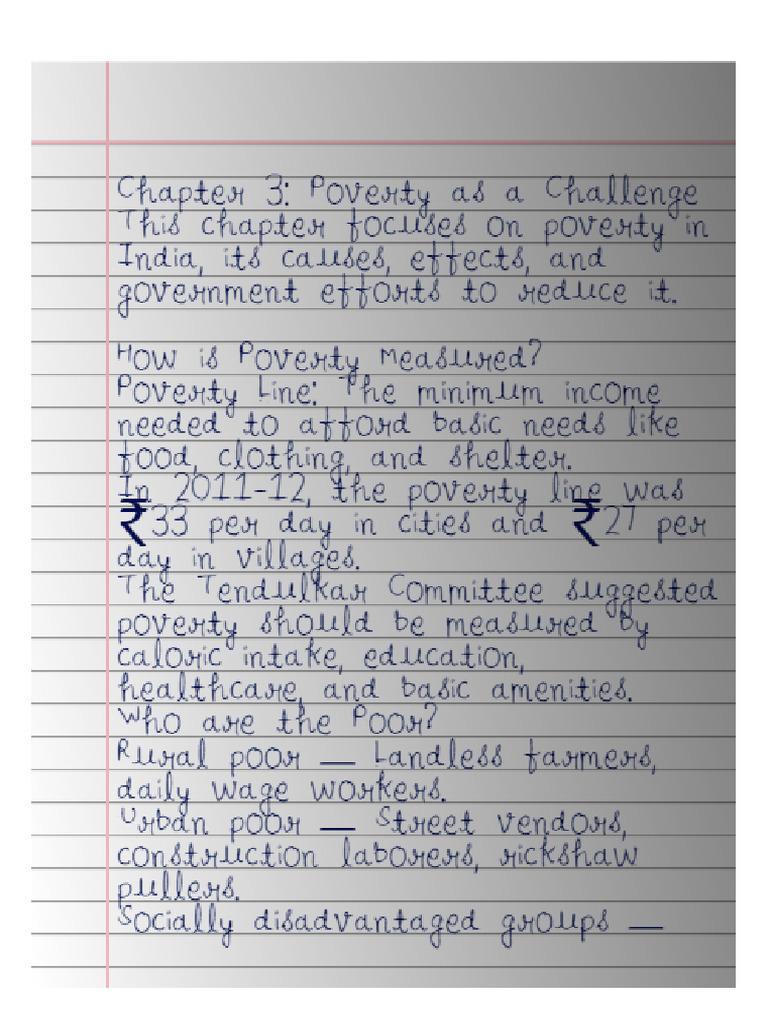 Chapter 3: Poverty as a Challenge
This chapter focuses on poverty in
India, its causes, effects, and
government efforts to reduce it.
How is Poverty Measured?
Poverty Line: The minimum income
needed to afford basic needs like
food, clothing, and shelter.
In 2011-12, the poverty line was
₹33 per day in cities and ₹27 per
day in villages.
The Tendulkar Committee suggested
poverty should be measured by
caloric intake, education,
healthcare, and basic amenities.
Who are the Poor?
Rural poor — Landless farmers,
daily wage workers.
Urban poor — Street vendors,
construction laborers, rickshaw
pullers.
Socially disadvantaged groups —